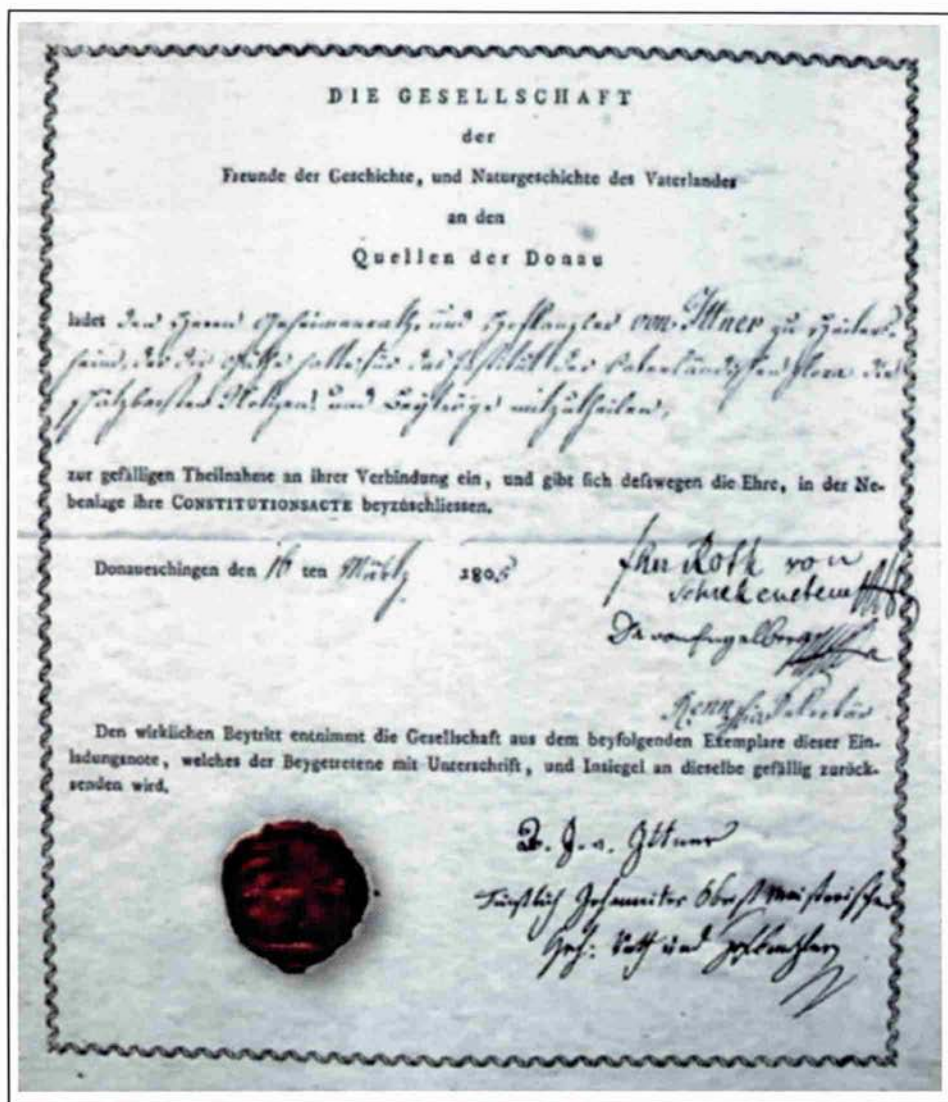 DIE GESELLSCHAFT
der
Freunde der Geschichte, und Naturgeschichte des Vaterlandes
an den
Quellen der Donau
ladet den Herrn Geheimenrath, und Hofkanzler von Ittner zu Heiters-
heim, der die Güte hatte für das Institut der vaterländischen Flora die
schätzbarsten Notizen und Beyträge mitzutheilen,
zur gefälligen Theilnahme an ihrer Verbindung ein, und gibt sich desswegen die Ehre, in der Ne-
benlage ihre CONSTITUTIONSACTE beyzuschliessen.
Donaueschingen den 16 ten März 1805
Fhr Roth von
Schrekenstein
Dr von Engelberg
Den wirklichen Beytritt entnimmt die Gesellschaft aus dem beyfolgenden Exemplare dieser Ein-
ladungsnote, welches der Beygetretene mit Unterschrift, und Insiegel an dieselbe gefällig zurück-
senden wird.
J. v. Ittner
Fürstlich Johanniter Obristmeisterischer
Geh: Rath und Hofkanzler